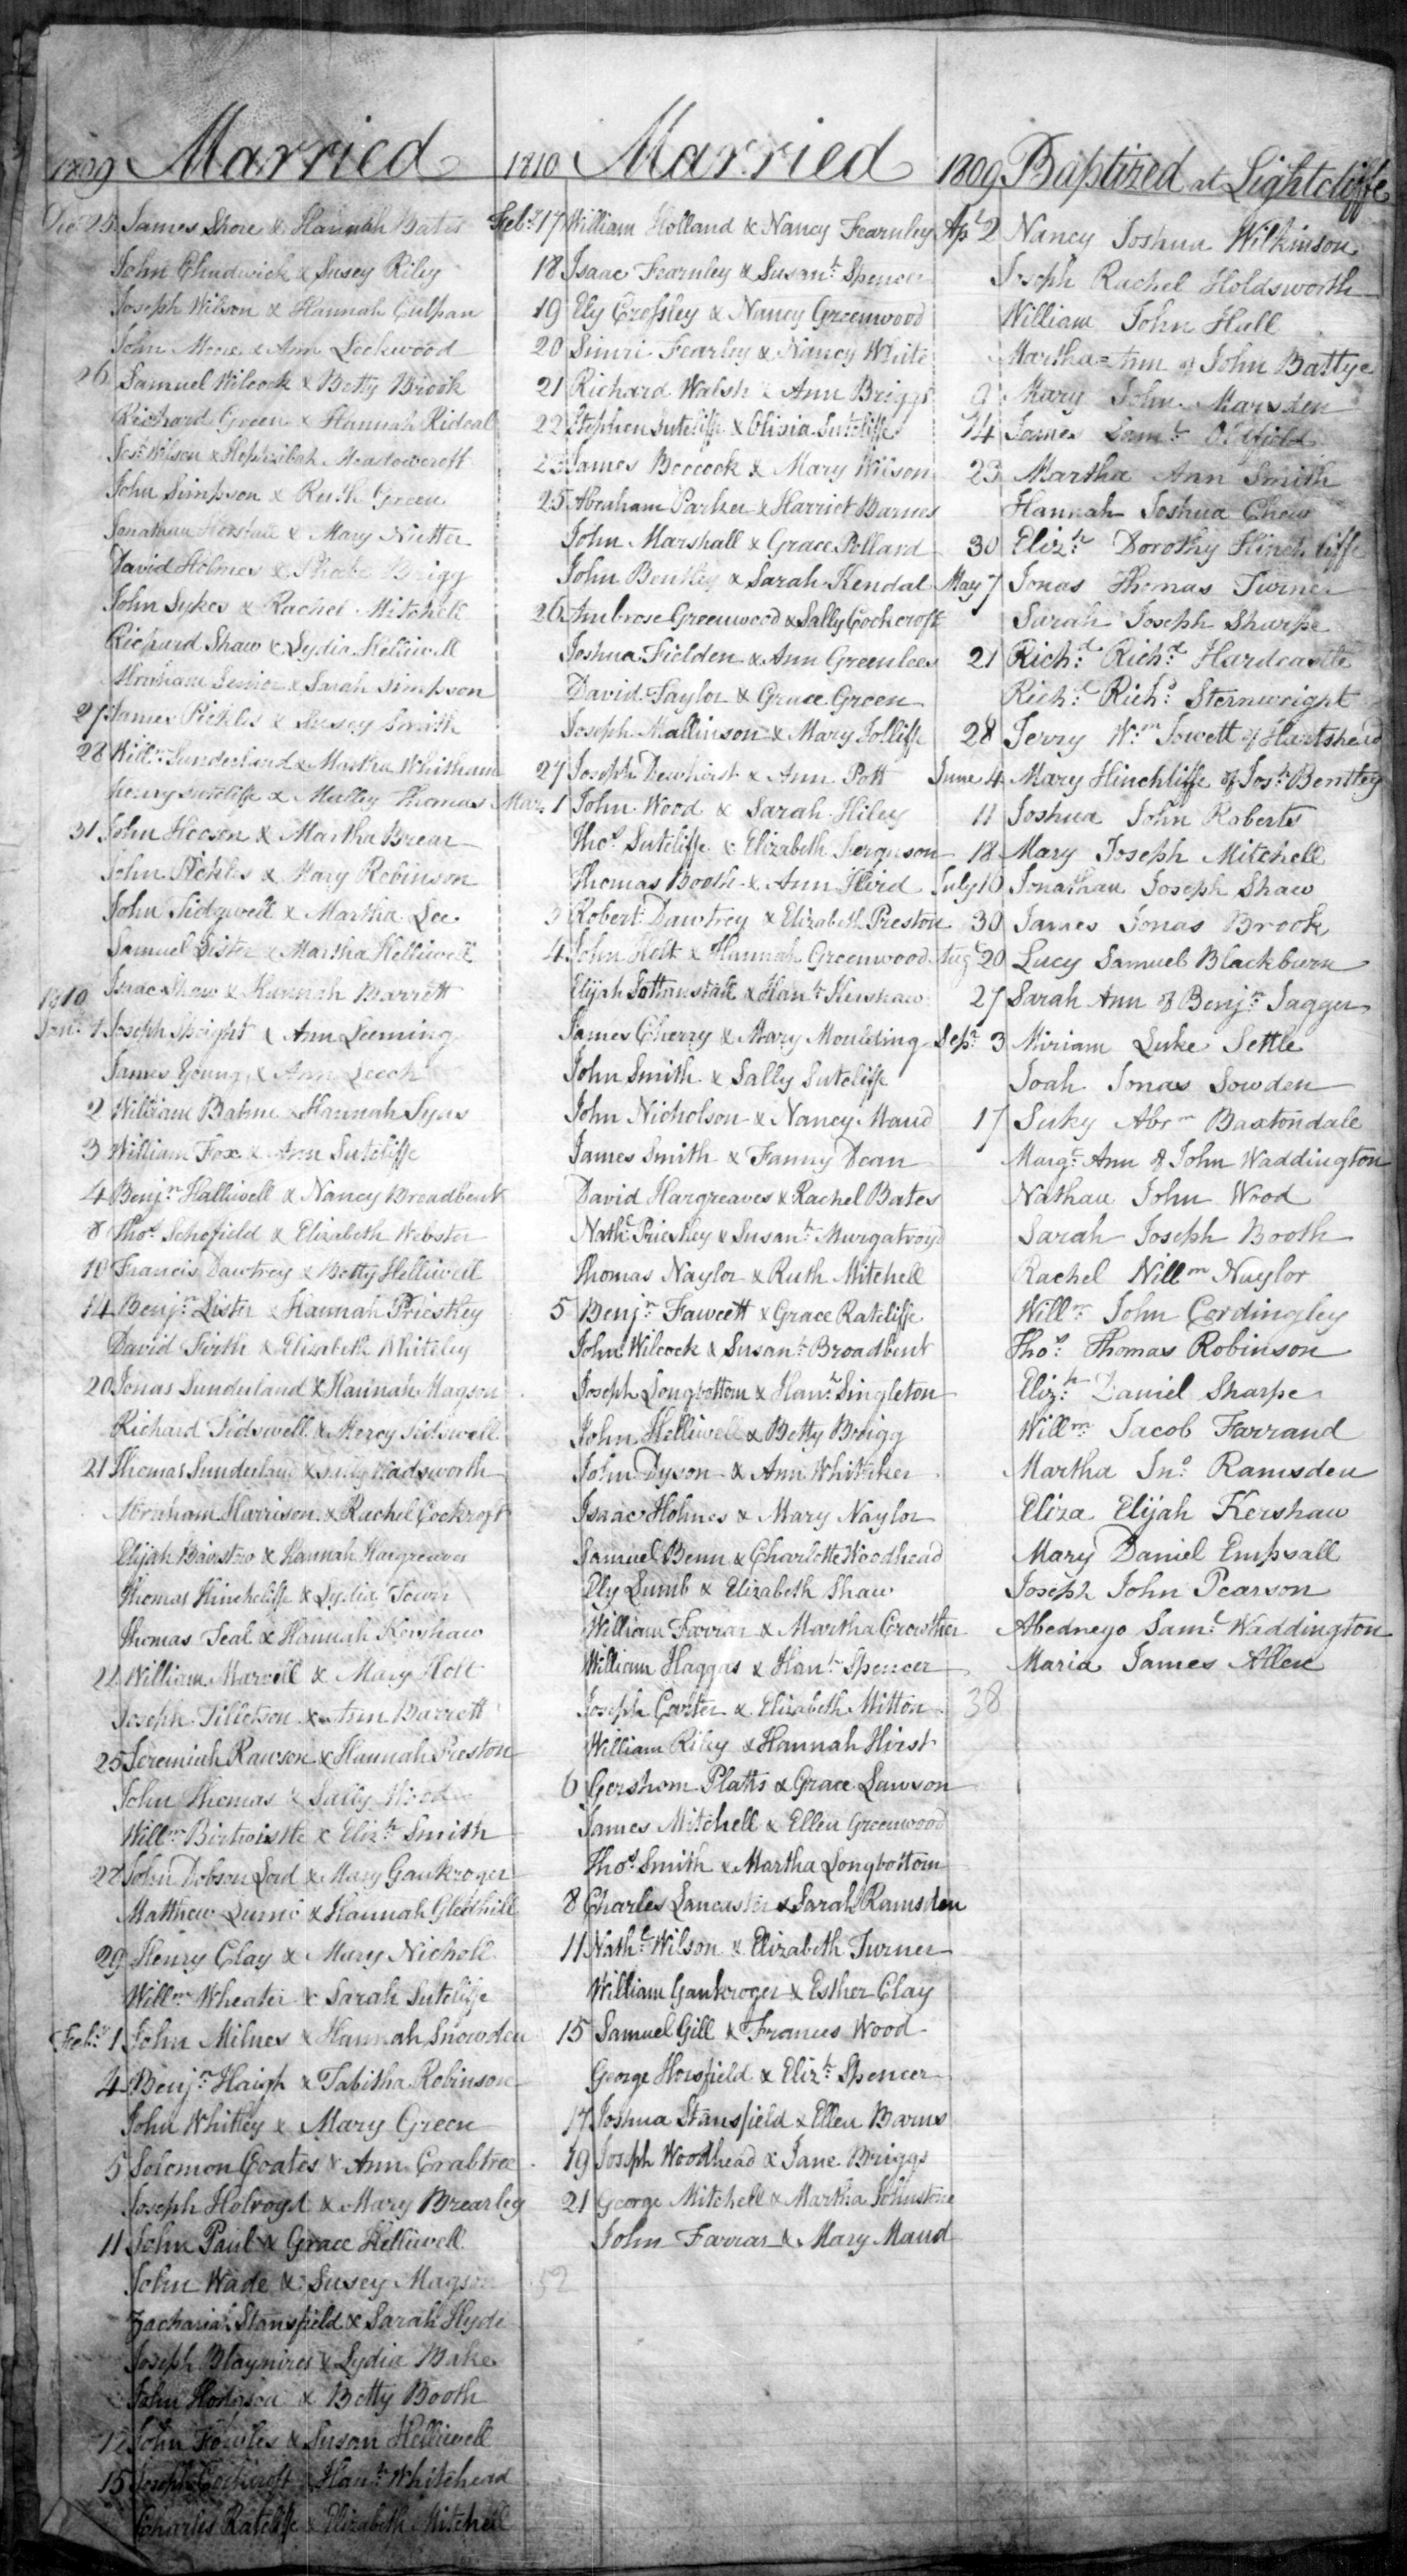 1809 Married
Dec 25 James Shore & Hannah Bates
John Chadwick & Susey Riley
Joseph Wilson & Hannah Culpan
John Moore & Ann Lockwood
26 Samuel Wilcock & Betty Brook
Richard Green & Hannah Rideal
Josh. Wilson & Hephzibah Meadowcroft
John Simpson & Ruth Green
Jonathan & Mary Nutter
David Holmes & Phoebe Brigg
John Sykes & Rachel Mitchell
Richard Shaw & Lydia Helliwell
Abraham Senior & Sarah Simpson
27 James Pickles & Susey Smith
28 Willm. Sunderland & Martha Whitham
Henry Sutcliffe & Malley Thomas
31 John Hooson & Martha Brear
John Pickles & Mary Robinson
John Sidgwell & Martha Lee
Samuel Lister & Martha Helliwell
Isaac Shaw & Hannah Barrett
1810
Jany. 1 Joseph Speight & Ann Leeming
James Young & Ann Leech
2 William Bahne & Hannah Syas
3 William Fox & Ann Sutcliffe
4 Benjn. Halliwell & Nancy Broadbent
8 Thos. Schofield & Elizabeth Webster
10 Francis Dawtrey & Betty Helliwell
14 Benjn. Lister & Hannah Priestley
David Firth & Elizabeth Whiteley
20 Jonas Sunderland & Hannah Magson
Richard Sidswell & Mercy Sidswell
21 Thomas Sunderland & Sally Wadsworth
Abraham Harrison & Rachel Cockroft
Elijah Bairstow & Hannah Hargreaves
Thomas Hinchcliffe & Lydia Town
Thomas Teal & Hannah Kershaw
22 William Marvell & Mary Holt
Joseph Tillotson & Ann Barrett
25 Jeremiah Rawson & Hannah Preston
John Thomas & Sally Wood
Willm. Birtwistle & Elizth. Smith
28 John Dobson Lord & Mary Gaukroger
Matthew Lumb & Hannah Gledhill
29 Henry Clay & Mary Nicholl
Willm. Wheater & Sarah Sutcliffe
Feby. 1 John Milnes & Hannah Snowden
4 Benjn. Haigh & Tabitha Robinson
John Whitley & Mary Green
5 Solomon Coates & Ann Crabtree
Joseph Holroyd & Mary Brearley
11 John Paul & Grace Helliwell
John Wade & Susey Magson
Zachariah Stansfield & Sarah Hyde
Joseph Blaymires & Lydia Bake
John Hodgson & Betty Booth
12 John Fowles & Susan Helliwell
15 Joseph Cockcroft & Hanh. Whitehead
Charles Ratcliffe & Elizabeth Mitchell
1810 Married
Feby. 17 William Holland & Nancy Fearnley
18 Isaac Fearnley & Susanh. Spencer
19 Ely Crossley & Nancy Greenwood
20 Simri Fearley & Nancy White
21 Richard Walsh & Ann Briggs
22 Stephen Sutcliffe & Olivia Sutcliffe
23 James Boocock & Mary Wilson
25 Abraham Parker & Harriet Barnes
John Marshall & Grace Pollard
John Bentley & Sarah Kendal
26 Ambrose Greenwood & Sally Cockcroft
Joshua Fielden & Ann Greenlees
David Taylor & Grace Green
Joseph Mallinson & Mary Jolliffe
27 Joseph Dewhirst & Ann Pott
Mar. 1 John Wood & Sarah Hiley
Thos. Sutcliffe & Elizabeth Ferguson
Thomas Booth & Ann Hird
3 Robert Dawtrey & Elizabeth Preston
4 John Holt & Hannah Greenwood
Elijah Sottanstall & Hanh. Kershaw
James Cherry & Mary Moulding
John Smith & Sally Sutcliffe
John Nicholson & Nancy Maud
James Smith & Fanny Dean
David Hargreaves & Rachel Bates
Nathl. Priestley & Susanh. Murgatroyd
Thomas Naylor & Ruth Mitchell
5 Benjn. Fawcett & Grace Ratcliffe
John Wilcock & Susanh. Broadbent
Joseph Longbottom & Hanh. Singleton
John Helliwell & Betty Brigg
John Dyson & Ann Whitaker
Isaac Holmes & Mary Naylor
Samuel Benn & Charlotte Woodhead
Ely Lumb & Elizabeth Shaw
William Farrar & Martha Crowther
William Haggas & Hanh. Spencer
Joseph Carter & Elizabeth Mitton
William Riley & Hannah Hirst
6 Gershom Platts & Grace Lawson
James Mitchell & Ellen Greenwood
Thos. Smith & Martha Longbottom
8 Charles Lancaster & Sarah Ramsden
11 Nathl. Wilson & Elizabeth Turner
William Gaukroger & Esther Clay
15 Samuel Gill & Frances Wood
George Horsfield & Elizth. Spencer
17 Joshua Stansfield & Ellen Barns
19 Joseph Woodhead & Jane Briggs
21 George Mitchell & Martha Johnstone
John Farrar & Mary Maud
52
1809 Baptized at Lightcliffe
Apl. 2 Nancy Joshua Wilkinson
Joseph Rachel Holdsworth
William John Hall
Martha=Ann of John Battye
9 Mary John Marsden
14 James Saml. Oldfield
23 Martha Ann Smith
Hannah Joshua Chew
30 Elizh. Dorothy Hinchliffe
May 7 Jonas Thomas Turner
Sarah Joseph Sharpe
21 Richd. Richd. Hardcastle
Richd. Richd. Sternwright
28 Jerry Wm. Jowett of Hartshead
June 4 Mary Hinchliffe of Josh. Bentley
11 Joshua John Roberts
18 Mary Joseph Mitchell
July 10 Jonathan Joseph Shaw
30 James Jonas Brook
Augt. 20 Lucy Samuel Blackburn
27 Sarah Ann of Benjn. Jagger
Sepr. 3 Miriam Luke Settle
Joah Jonas Sowden
17 Suky Abrm. Baxtondale
Margt. Ann of John Waddington
Nathan John Wood
Sarah Joseph Booth
Rachel Willm Naylor
Willm. John Cordingley
Thos. Thomas Robinson
Elizh. Daniel Sharpe
Willm. Jacob Farrand
Martha Jno. Ramsden
Eliza Elijah Kershaw
Mary Daniel Empsall
Joseph John Pearson
Abednego Saml. Waddington
Maria James Allen
38